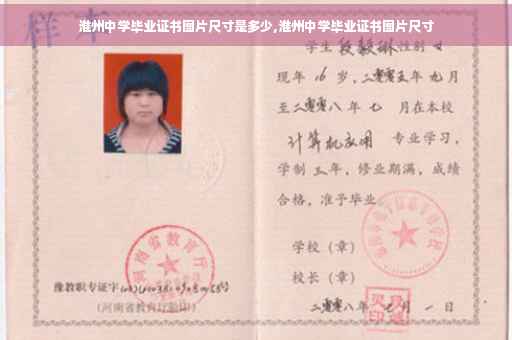 淮州中学毕业证书图片尺寸是多少,淮州中学毕业证书图片尺寸
样本
学生 段毅琳 性别 女
现年 16 岁,二零零五年九月
至二零零八年七月在本校
计算机应用 专业学习,
学制三年,修业期满,成绩
合格,准予毕业
学校（章）
校长（章）
二零零八年七月一日
河南省教育厅
豫教职专证字
(河南省教育厅验印)